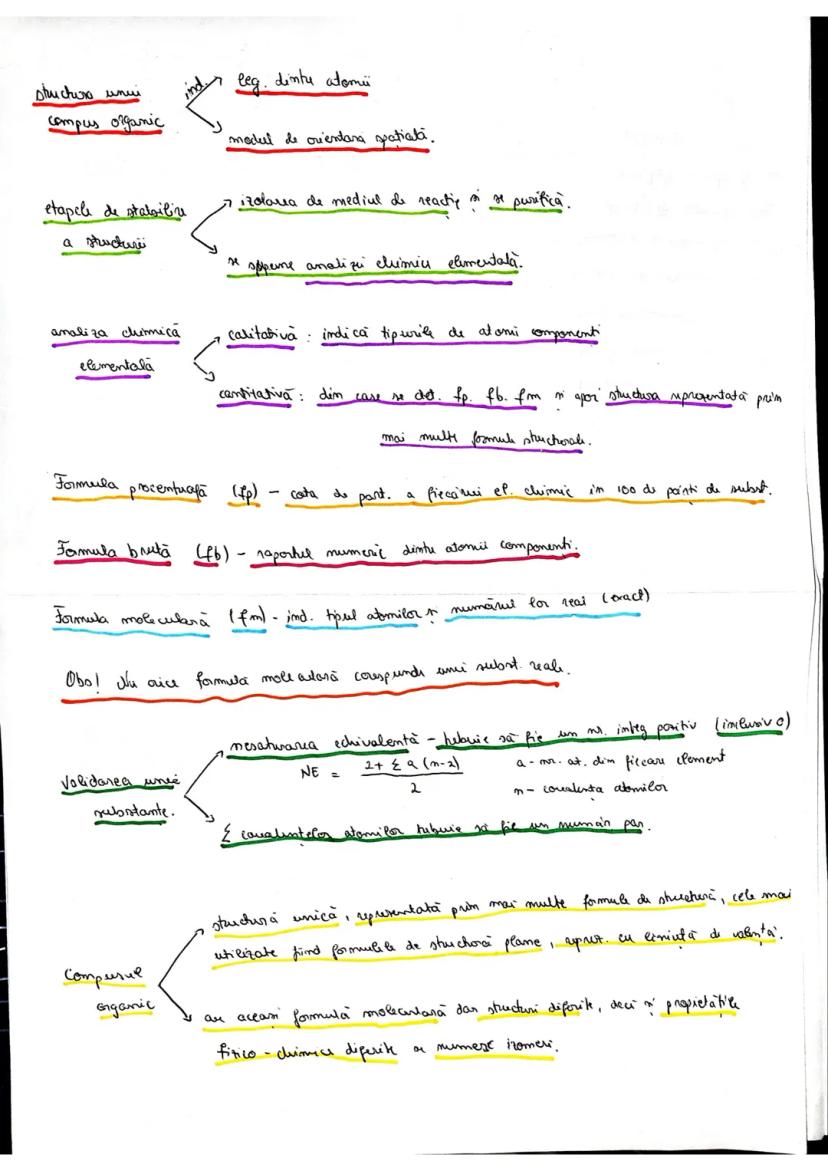 structura unui
compus organic
ind.
leg. dintre atomii
modul de orientarea spațială.
etapele de stabilire
a structurii
izolarea de mediul de reacție și se purifică.
se sppune analizei chimice elementală.
analiza chimică
elementală
calitativă : indică tipurile de atomi componenti
cantitativă : din case se det. fp. fb. fm și apoi structura reprezentată prin
mai multe formule structurale.
Formula procentuală (fp) - cota de part. a fiecărui el. chimic in 100 de părți de subst.
Formula brută (fb) - raportul numeric dintre atomii componenti.
Formula moleculară (fm) - ind. tipul atomilor și numărul lor real (exact)
Obs! Nu orice formulă moleculară corespunde unei subst. reale.
Validarea unei
substante.
nesaturarea echivalentă - trebuie să fie un nr. integ pozitiv (inclusiv 0)
NE = 2+ Σ a (n-2) / 2
a - nr. at. din fiecare element
n - covalența atomilor
Σ covalentelor atomilor trebuie să fie un număr par.
Compusul
organic
structură unică, reprezentată prin mai multe formule de structură, cele mai
utilizate fiind formulele de structură plane, reprez. cu liniuță de valență.
au aceeași formulă moleculară dar structuri diferite, deci și proprietățile
fizico - chimice diferite se numesc izomeri.